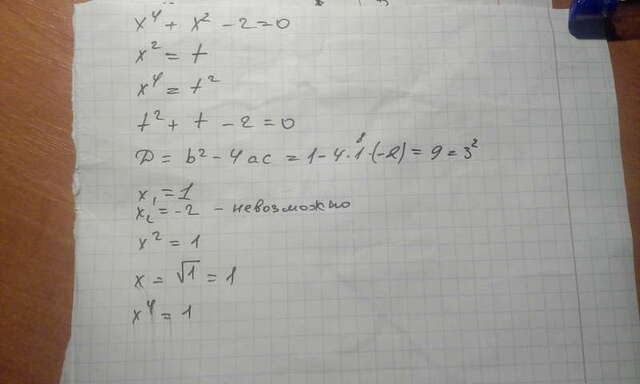 x⁴ + x² - 2 = 0
x² = t
x⁴ = t²
t² + t - 2 = 0
D = b² - 4ac = 1 - 4·1·(-2) = 9 = 3²
x₁ = 1
x₂ = -2 - невозможно
x² = 1
x = √1 = 1
x⁴ = 1